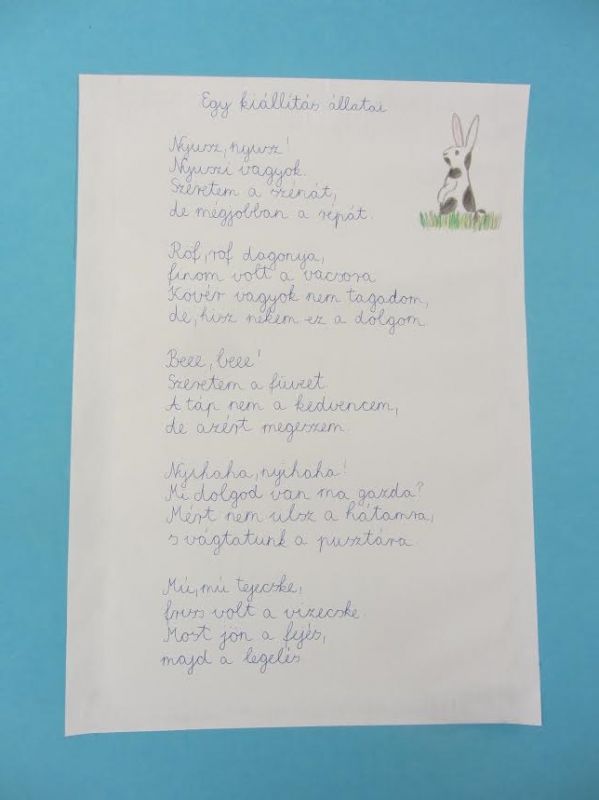 Egy kiállítás állatai
Nyusz, nyusz!
Nyuszi vagyok.
Szeretem a szénát,
de mégjobban a répát.
Röf, röf dagonya,
finom volt a vacsora
Kövér vagyok nem tagadom,
de, hisz nekem ez a dolgom
Beee, beee!
Szeretem a füveet.
A táp nem a kedvencem,
de azért megeszem.
Nyihaha, nyihaha!
Mi dolgod van ma gazda?
Mért nem ülsz a hátamra,
s vágtatunk a pusztára.
Mú, mú tejecske,
friss volt a vizecske.
Most jön a fejés,
majd a legelés